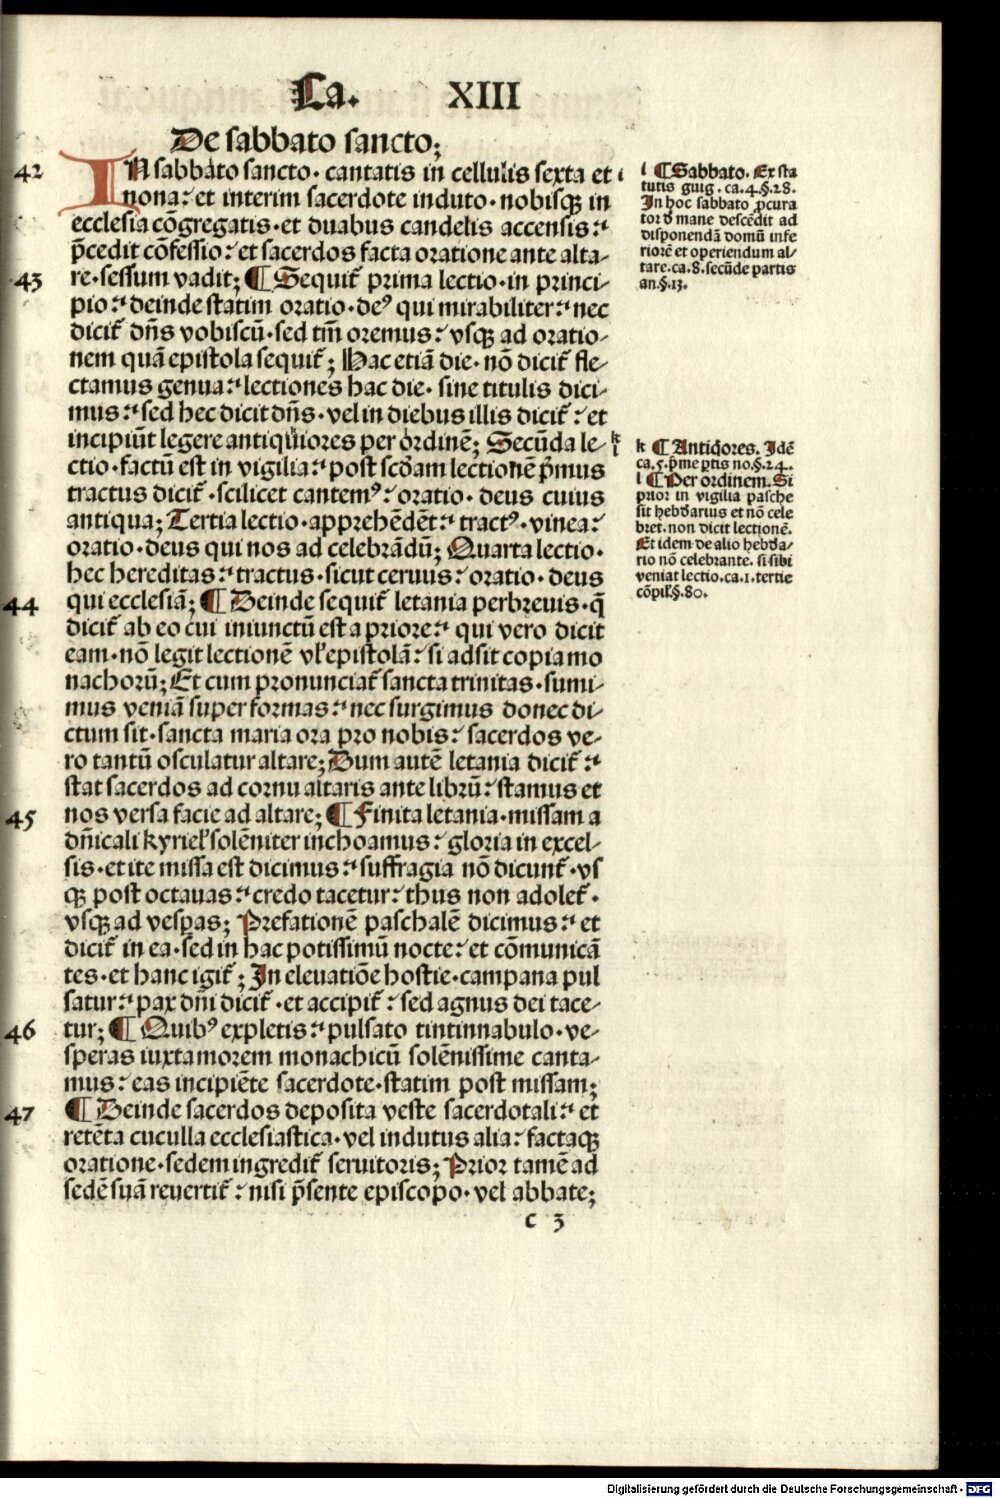 La. XIII
De sabbato sancto;
42 IN sabbato sancto · cantatis in cellulis sexta et i
nona : et interim sacerdote induto · nobisqꝫ in
ecclesia cōgregatis · et duabus candelis accensis :
p̄cedit cōfessio : et sacerdos facta oratione ante alta-
43 re · sessum vadit; ¶ Sequit̃ prima lectio · in princi-
pio : deinde statim oratio · deꝰ qui mirabiliter : nec
dicit̃ dn̄s vobiscū · sed tm̄ oremus : vsqꝫ ad oratio-
nem quā epistola sequit̃; Hac etiā die · nō dicit̃ fle-
ctamus genua : lectiones hac die · sine titulis dici-
mus : sed hec dicit dn̄s · vel in diebus illis dicit̃ : et
incipiūt legere antiquiores per ordinē; Secūda le- k l
ctio · factū est in vigilia : post scd̄am lectionē p̄mus
tractus dicit̃ · scilicet cantemꝰ : oratio · deus cuius
antiqua; Tertia lectio · apprehēdēt : tractꝰ · vinea :
oratio · deus qui nos ad celebrādū; Quarta lectio ·
hec hereditas : tractus · sicut ceruus : oratio · deus
44 qui ecclesiā; ¶ Deinde sequit̃ letania perbreuis · q̄
dicit̃ ab eo cui iniunctū est a priore : qui vero dicit
eam · nō legit lectionē vl̃ epistolā : si adsit copia mo
nachorū; Et cum pronunciat̃ sancta trinitas · sumi-
mus veniā super formas : nec surgimus donec di-
ctum sit · sancta maria ora pro nobis : sacerdos ve-
ro tantū osculatur altare; Dum autē letania dicit̃ :
stat sacerdos ad cornu altaris ante librū : stamus et
45 nos versa facie ad altare; ¶ Finita letania · missam a
dn̄icali kyriel̃ solēniter inchoamus : gloria in excel-
sis · et ite missa est dicimus : suffragia nō dicunt̃ · vs
qꝫ post octauas : credo tacetur : thus non adolet̃ ·
vsqꝫ ad vesꝑas; Prefationē paschalē dicimus : et
dicit̃ in ea · sed in hac potissimū nocte : et cōmunicā
tes · et hanc igit̃; In eleuatiōe hostie · campana pul
satur : pax dn̄i dicit̃ · et accipit̃ : sed agnus dei tace-
46 tur; ¶ Quibꝰ expletis : pulsato tintinnabulo · ve-
speras iuxta morem monachicū solēnissime canta-
mus : eas incipiēte sacerdote · statim post missam;
47 ¶ Deinde sacerdos deposita veste sacerdotali : et
retēta cuculla ecclesiastica · vel indutus alia : factaqꝫ
oratione · sedem ingredit̃ seruitoris; Prior tamē ad
sedē suā reuertit̃ : nisi p̄sente episcopo · vel abbate;
c 3
i ¶ Sabbato. Ex sta
tutis guig. ca. 4. §. 28.
In hoc sabbato ꝓcura
tor d̄ mane descēdit ad
disponendā domū infe
riorē et operiendum al-
tare. ca. 8. secūde partis
an. §. 13.
k ¶ Antiq̇ores. Idē
ca. 5. p̄me ꝑtis no. §. 24.
l ¶ Per ordinem. Si
prior in vigilia pasche
sit hebd̄arius et nō cele
bret. non dicit lectionē.
Et idem de alio hebd̄a-
rio nō celebrante. si sibi
veniat lectio. ca. 1. tertie
cōpil̃. §. 80.
Digitalisierung gefördert durch die Deutsche Forschungsgemeinschaft - DFG